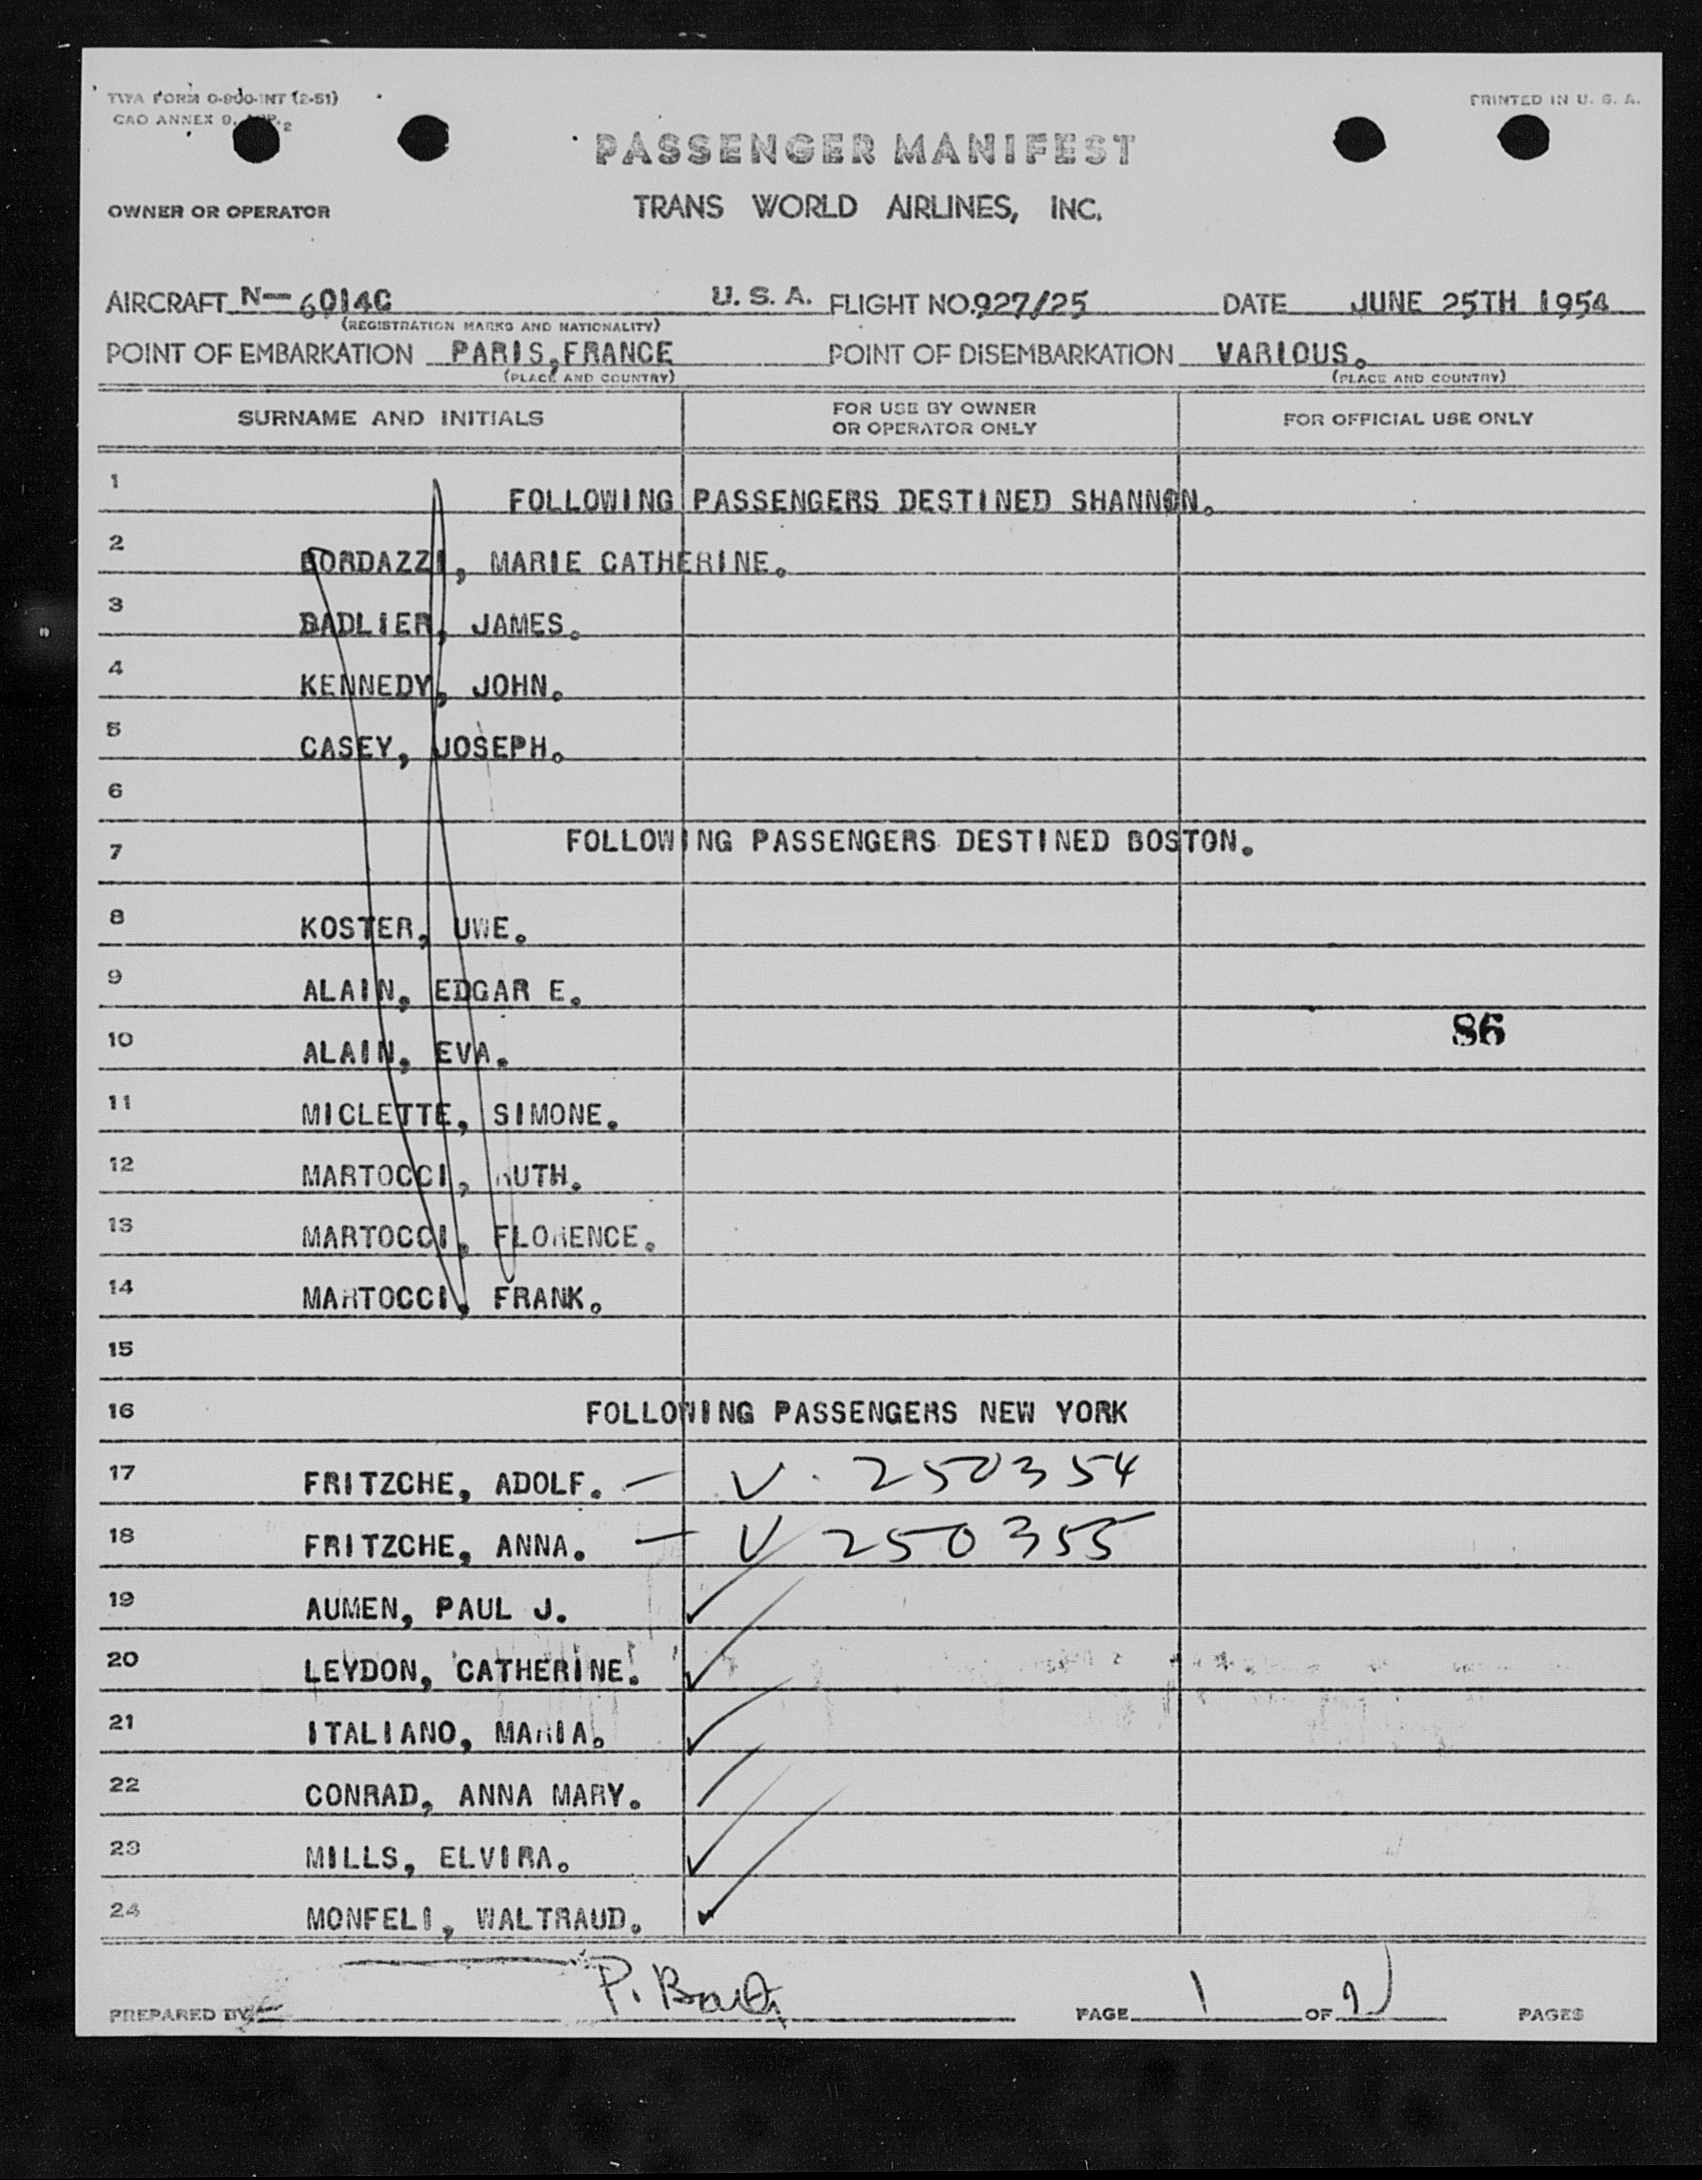 TWA FORM O-800-INT (2-51)
PRINTED IN U. S. A.
CAO ANNEX 9, APP. 2
PASSENGER MANIFEST
OWNER OR OPERATOR TRANS WORLD AIRLINES, INC.
AIRCRAFT N-6014C U. S. A. FLIGHT NO. 927/25 DATE JUNE 25TH 1954
(REGISTRATION MARKS AND NATIONALITY)
POINT OF EMBARKATION PARIS,FRANCE POINT OF DISEMBARKATION VARIOUS.
(PLACE AND COUNTRY) (PLACE AND COUNTRY)
SURNAME AND INITIALS FOR USE BY OWNER OR OPERATOR ONLY FOR OFFICIAL USE ONLY
1 FOLLOWING PASSENGERS DESTINED SHANNON.
2 BORDAZZI, MARIE CATHERINE.
3 BADLIER, JAMES.
4 KENNEDY, JOHN.
5 CASEY, JOSEPH.
6
7 FOLLOWING PASSENGERS DESTINED BOSTON.
8 KOSTER, UWE.
9 ALAIN, EDGAR E.
86
10 ALAIN, EVA.
11 MICLETTE, SIMONE.
12 MARTOCCI, RUTH.
13 MARTOCCI, FLORENCE.
14 MARTOCCI, FRANK.
15
16 FOLLOWING PASSENGERS NEW YORK
17 FRITZCHE, ADOLF. — V. 250354
18 FRITZCHE, ANNA. — V 250355
19 AUMEN, PAUL J. ✓
20 LEYDON, CATHERINE. ✓
21 ITALIANO, MARIA. ✓
22 CONRAD, ANNA MARY.
23 MILLS, ELVIRA. ✓
24 MONFELI, WALTRAUD. ✓
PREPARED BY P. PAGE 1 OF 2 PAGES